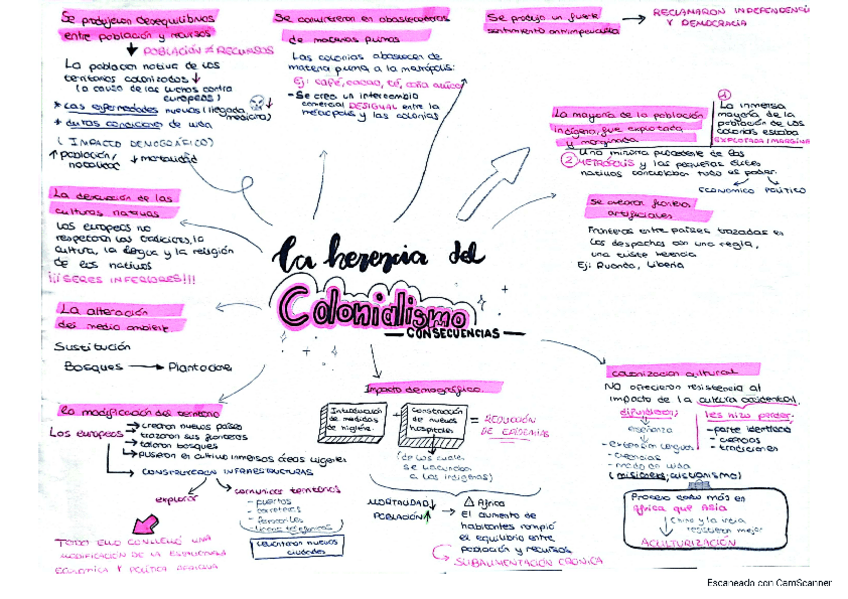 Se produjeron desequilibrios
entre población y recursos
POBLACIÓN ≠ RECURSOS
La población nativa de los
territorios colonizados ↓
(a causa de las luchas contra
europeos)
* Las enfermedades nuevas (llegada
* duras condiciones de vida
(IMPACTO DEMOGRÁFICO)
↑ población,
natalidad ↓ mortalidad
Se convirtieron en abastecedores
de materias primas
Las colonias abastecen de
materia prima a la metrópolis:
Ej: café, cacao, té, caña
- Se creo un intercambio
comercial DESIGUAL entre la
metrópolis y las colonias
Se produjo un fuerte
sentimiento antiimperialista
→ RECLAMARON INDEPENDENCIA
Y DEMOCRACIA
La mayoría de la población
indígena, fue explotada
y marginada
① La inmensa
mayoría de la
población de las
colonias estaba
EXPLOTADA
② Una minoría procedente de las
METRÓPOLIS y las pequeñas élites
nativas controlaban todo el poder.
ECONÓMICO POLÍTICO
Se crearon fronteras
artificiales
Fronteras entre países trazadas en
los despachos con una regla,
una triste herencia
Ej: Ruanda, Liberia
La destrucción de las
culturas nativas
Los europeos no
respetaron las tradiciones, la
cultura, la lengua y la religión
de los nativos
¡¡¡SERES INFERIORES!!!
La herencia del
Colonialismo
— CONSECUENCIAS —
La alteración
del medio ambiente
Sustitución
Bosques → Plantaciones
La modificación del territorio
Los europeos
→ crearon nuevos países
→ trazaron sus fronteras
→ talaron bosques
→ pusieron en cultivo inmensas áreas vírgenes
CONSTRUCCIÓN INFRAESTRUCTURAS
explorar
comunicar territorios
- puertos
- carreteras
- ferrocarriles
- líneas telefónicas
Levantaron nuevas
ciudades
TODO ELLO CONLLEVÓ UNA
MODIFICACIÓN DE LA ESTRUCTURA
ECONÓMICA Y POLÍTICA INDÍGENA
Impacto demográfico
Introducción
de medidas
de higiene
Construcción
de nuevos
hospitales
= REDUCCIÓN
DE EPIDEMIAS
(de los cuales
se vacunaban
a los indígenas)
MORTALIDAD ↓
POBLACIÓN ↑
→ △ África
El aumento de
habitantes rompió
el equilibrio entre
población y recursos
SUBALIMENTACIÓN CRÓNICA
colonización cultural
No ofrecieron resistencia al
impacto de la cultura occidental,
difundieron;
enseñanza
- expansión lenguas
- ciencias
- modo de vida
(misioneros, cristianismo)
les hizo perder;
- parte identidad
- creencias
- tradiciones
Proceso costó más en
África que Asia
China y la India
resistieron mejor
ACULTURIZACIÓN
Escaneado con CamScanner